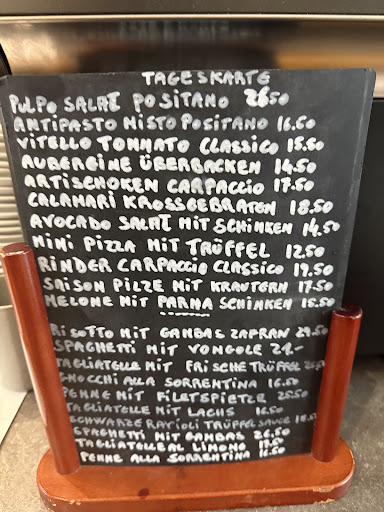 TAGESKARTE
PULPO SALAT POSITANO 26.50
ANTIPASTO MISTO POSITANO 16.50
VITELLO TONNATO CLASSICO 15.50
AUBERGINE ÜBERBACKEN 14.50
ARTISCHOKEN CARPACCIO 17.50
CALAMARI KROSSGEBRATEN 18.50
AVOCADO SALAT MIT SCHINKEN 14.50
MINI PIZZA MIT TRÜFFEL 12.50
RINDER CARPACCIO CLASSICO 19.50
SAISON PILZE MIT KRAUTERN 17.50
MELONE MIT PARMA SCHINKEN 15.50
RISOTTO MIT GAMBAS ZAFRAN 29.50
SPAGHETTI MIT VONGOLE 21.-
TAGLIATELLE MIT FRISCHE TRÜFFEL
GNOCCHI ALLA SORRENTINA 16.50
PENNE MIT FILETSPIETER 25.50
TAGLIATELLE MIT LACHS 16.50
SCHWARZE RAVIOLI TRÜFFEL SAUCE 18.50
SPAGHETTI MIT GAMBAS 26.50
TAGLIATELLE AL LIMONE
PENNE ALLA SORRENTINA 16.50